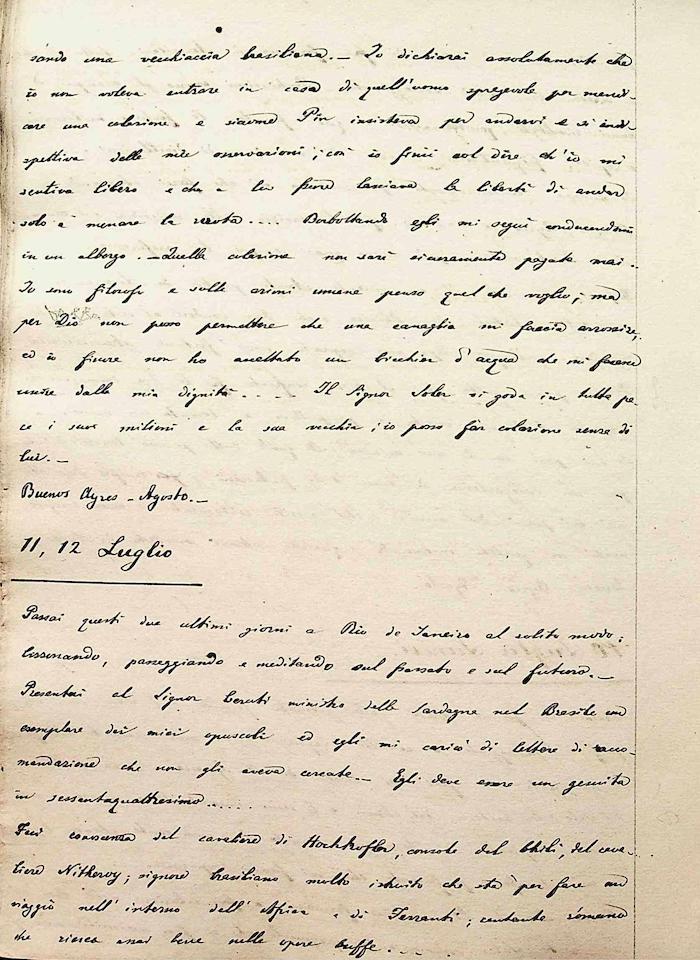 sando una vecchiaccia brasiliana. — Io dichiarai assolutamente che
io non voleva entrare in casa di quell'uomo spregevole per mendi-
care una colazione e siccome Pin insisteva per andarvi e si indi-
spettiva delle mie osservazioni; così io finii col dire ch'io mi
sentiva libero e che a lui fosse lasciava la libertà di andar
solo a menare la ruota.... Borbottando egli mi seguì conducendomi
in un albergo. — Quella colazione non sarà sicuramente pagata mai..
Io sono filosofo e sulle azioni umane penso quel che voglio; ma
per Dio non posso permettere che una canaglia mi faccia arrossire,
ed io finora non ho accettato un bicchier d'acqua che mi facesse
uscire dalla mia dignità.... Il Signor Soler si goda in tutta pa-
ce i suoi milioni e la sua vecchia; io posso far colazione senza di
lui. —
Buenos Ayres - Agosto. —
11, 12 Luglio
Passai questi due ultimi giorni a Rio de Janeiro al solito modo:
passeggiando e meditando sul passato e sul futuro. —
Presentai al Signor Ceruti ministro della Sardegna nel Brasile un
esemplare dei miei opuscoli ed egli mi caricò di lettere di racco-
mandazione che non gli aveva cercate — Egli deve essere un gesuita
in sessantaquattresimo......
Feci conoscenza del cavaliere di Hochkofler, console del Chilì, del cava-
liere Nitheroy; signore brasiliano molto istruito che sta per fare un
viaggio nell'interno dell'Africa e di Ferranti; cantante romano
che riesce assai bene nelle opere buffe....